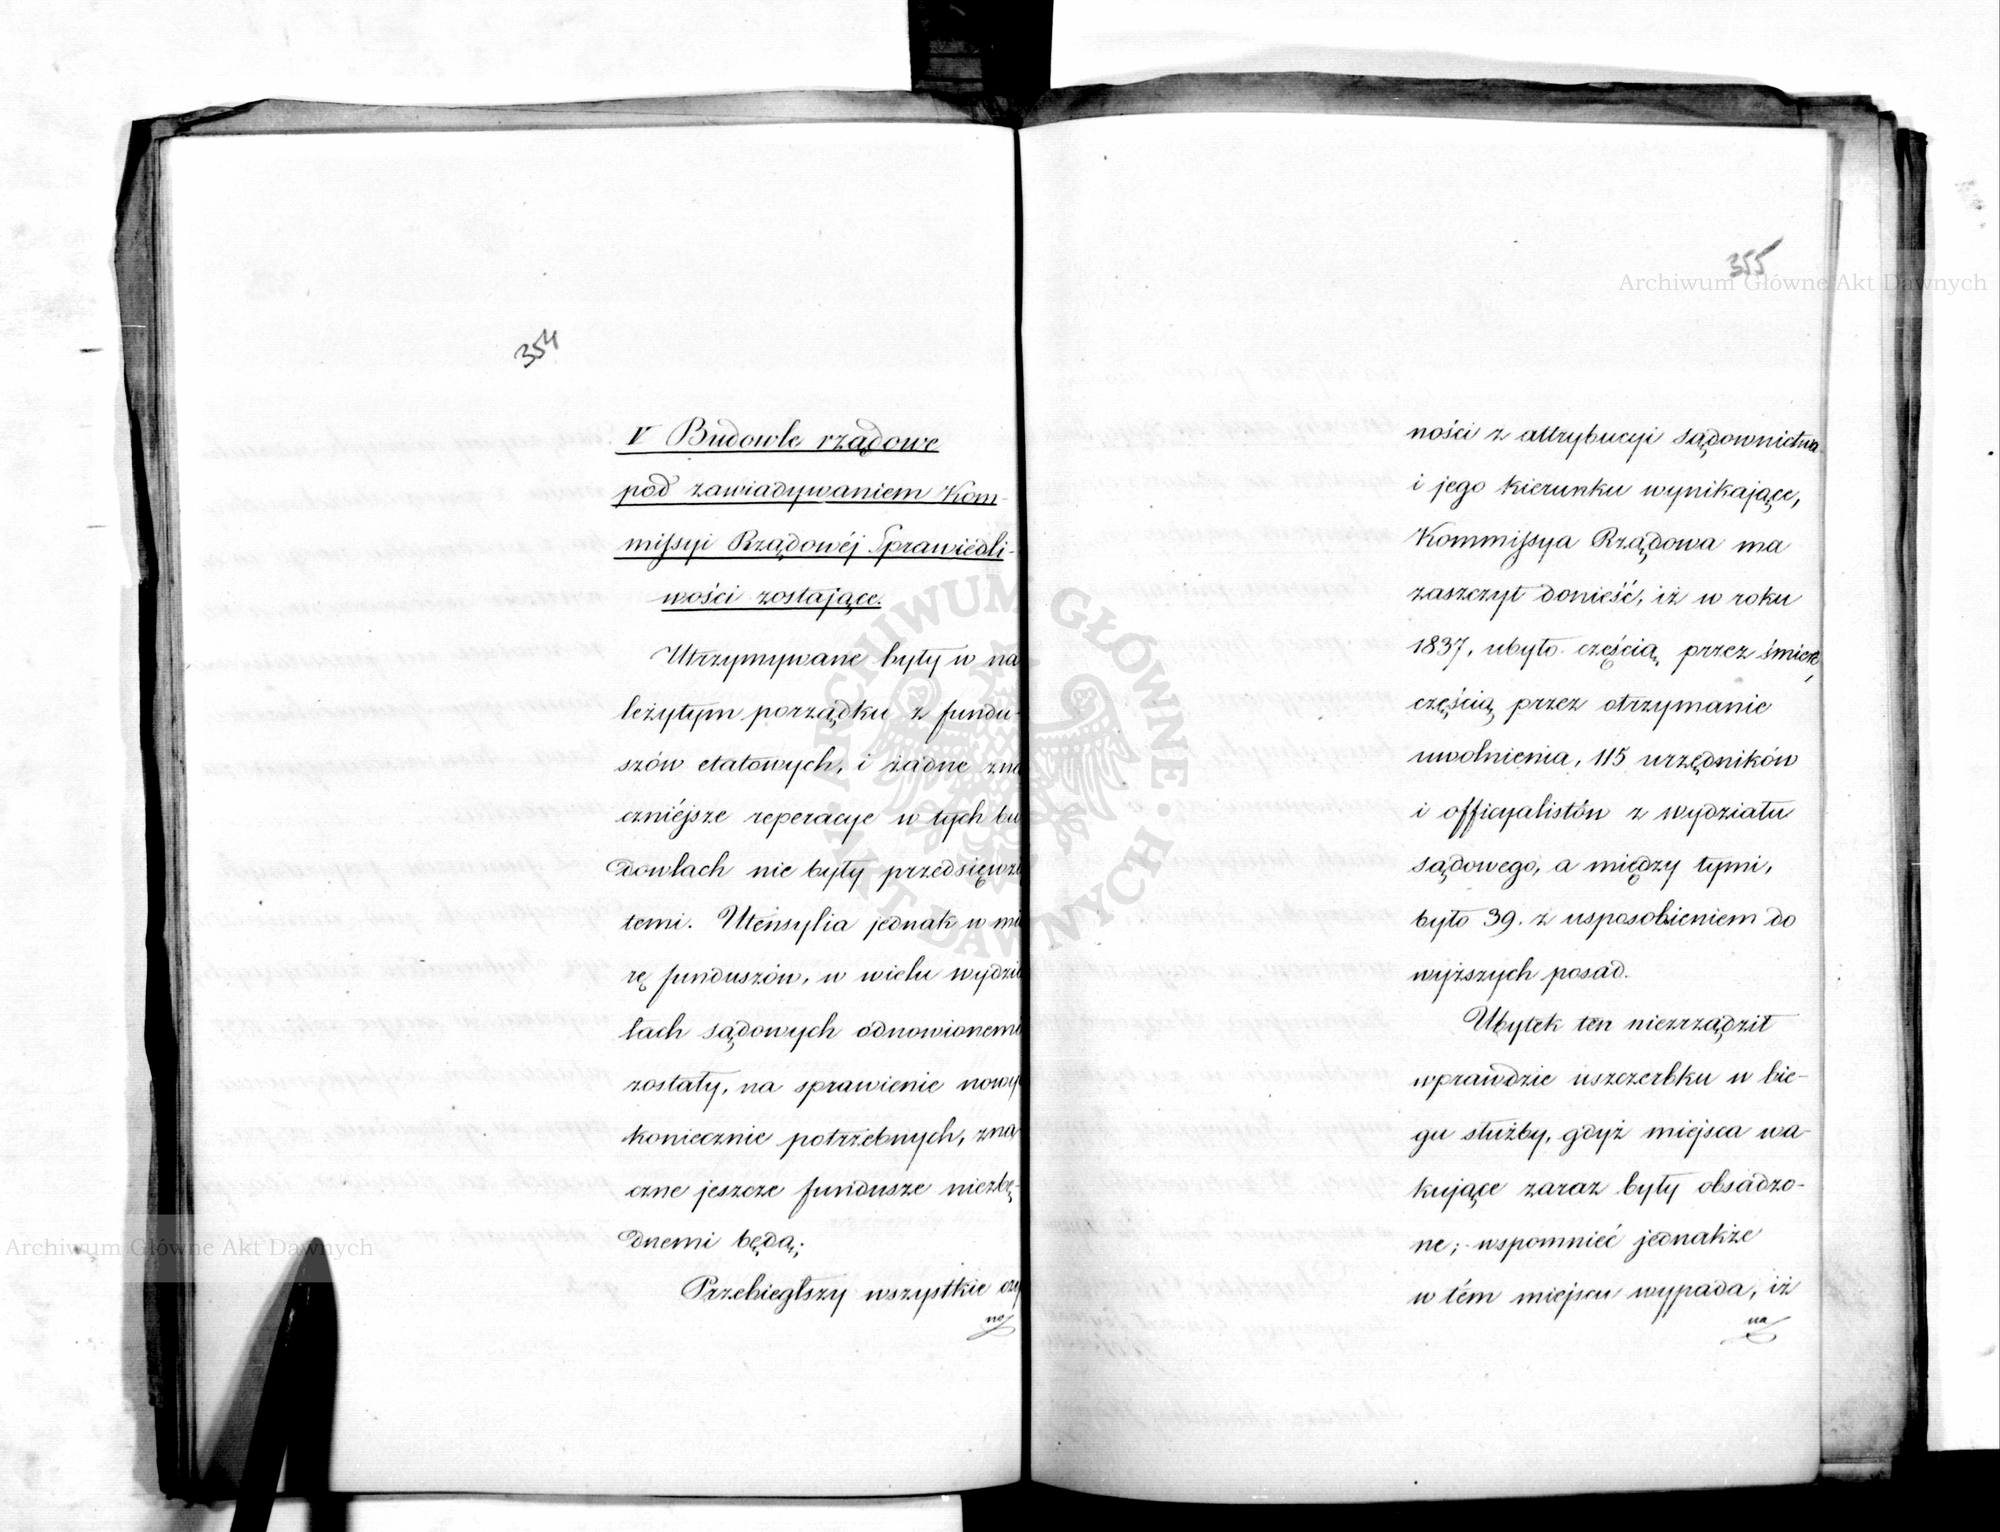 354
V Budowle rządowe
pod zawiadywaniem Kom-
missyi Rządowéj Sprawiedli-
wości zostające.
Utrzymywane były w na
leżytym porządku z fundu-
szów etatowych, i żadne zna
czniéjsze reperacye w tych bu
dowlach nie były przedsięwzię
temi. Utensylia jednak w mia
rę funduszów, w wielu wydzia
łach sądowych odnowionemi
zostały, na sprawienie nowych
koniecznie potrzebnych, zna-
czne jeszcze fundusze niezbę-
dnemi będą;
Przebiegłszy wszystkie czy
no
355
ności z attrybucyi sądownictwa
i jego kierunku wynikające,
Kommissya Rządowa ma
zaszczyt donieść, iż w roku
1837, ubyło częścią przez śmierć,
częścią przez otrzymanie
uwolnienia, 115 urzędników
i officyalistów z wydziału
sądowego, a między tymi,
było 39. z usposobieniem do
wyższych posad.
Ubytek ten niezrządził
wprawdzie uszczerbku w bie-
gu służby, gdyż miejsca wa-
kujące zaraz były obsadzo-
ne; wspomnieć jednakże
w tém miejscu wypada, iż
na
Archiwum Główne Akt Dawnych
Archiwum Główne Akt Dawnych
ARCHIWUM GŁÓWNE AKT DAWNYCH